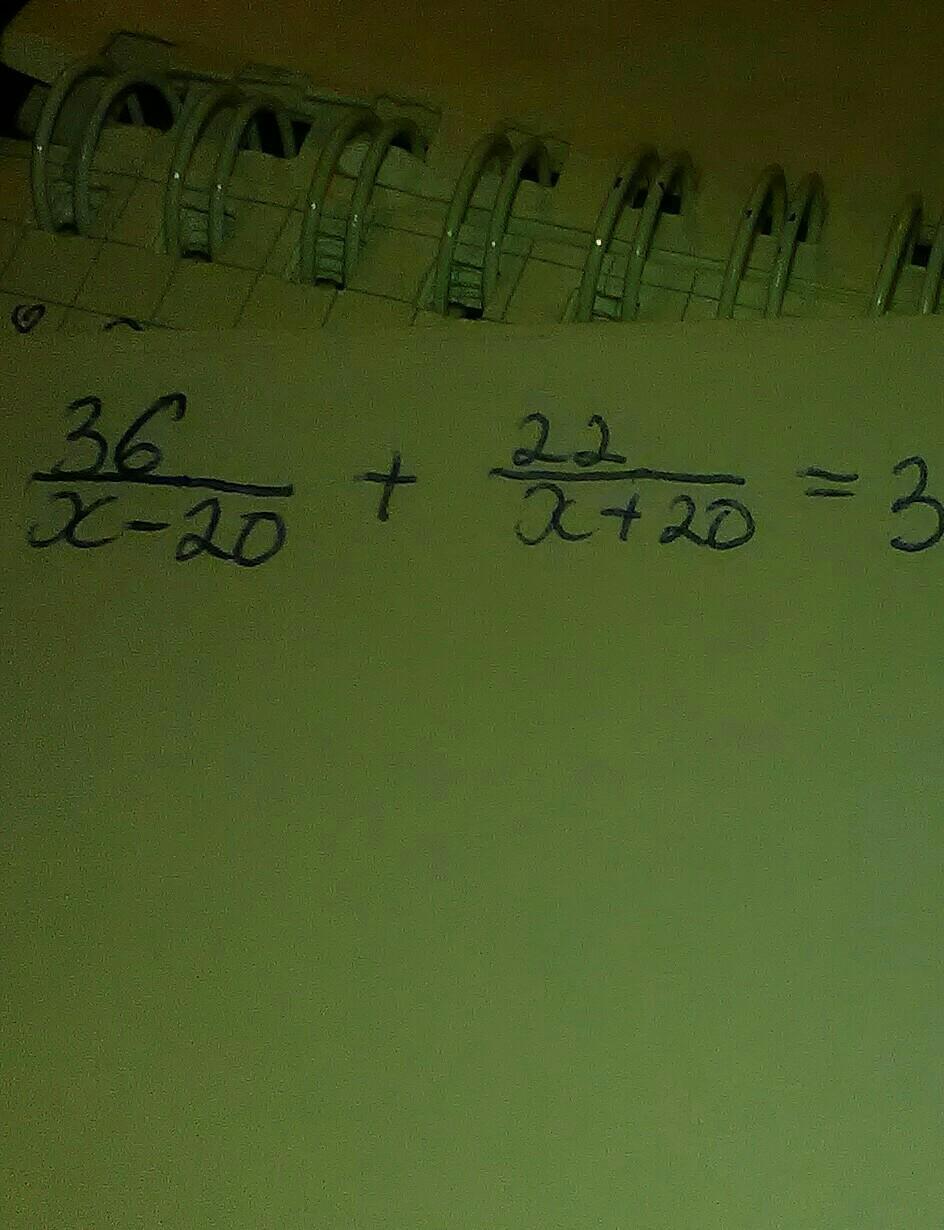 36/(x-20) + 22/(x+20) = 3